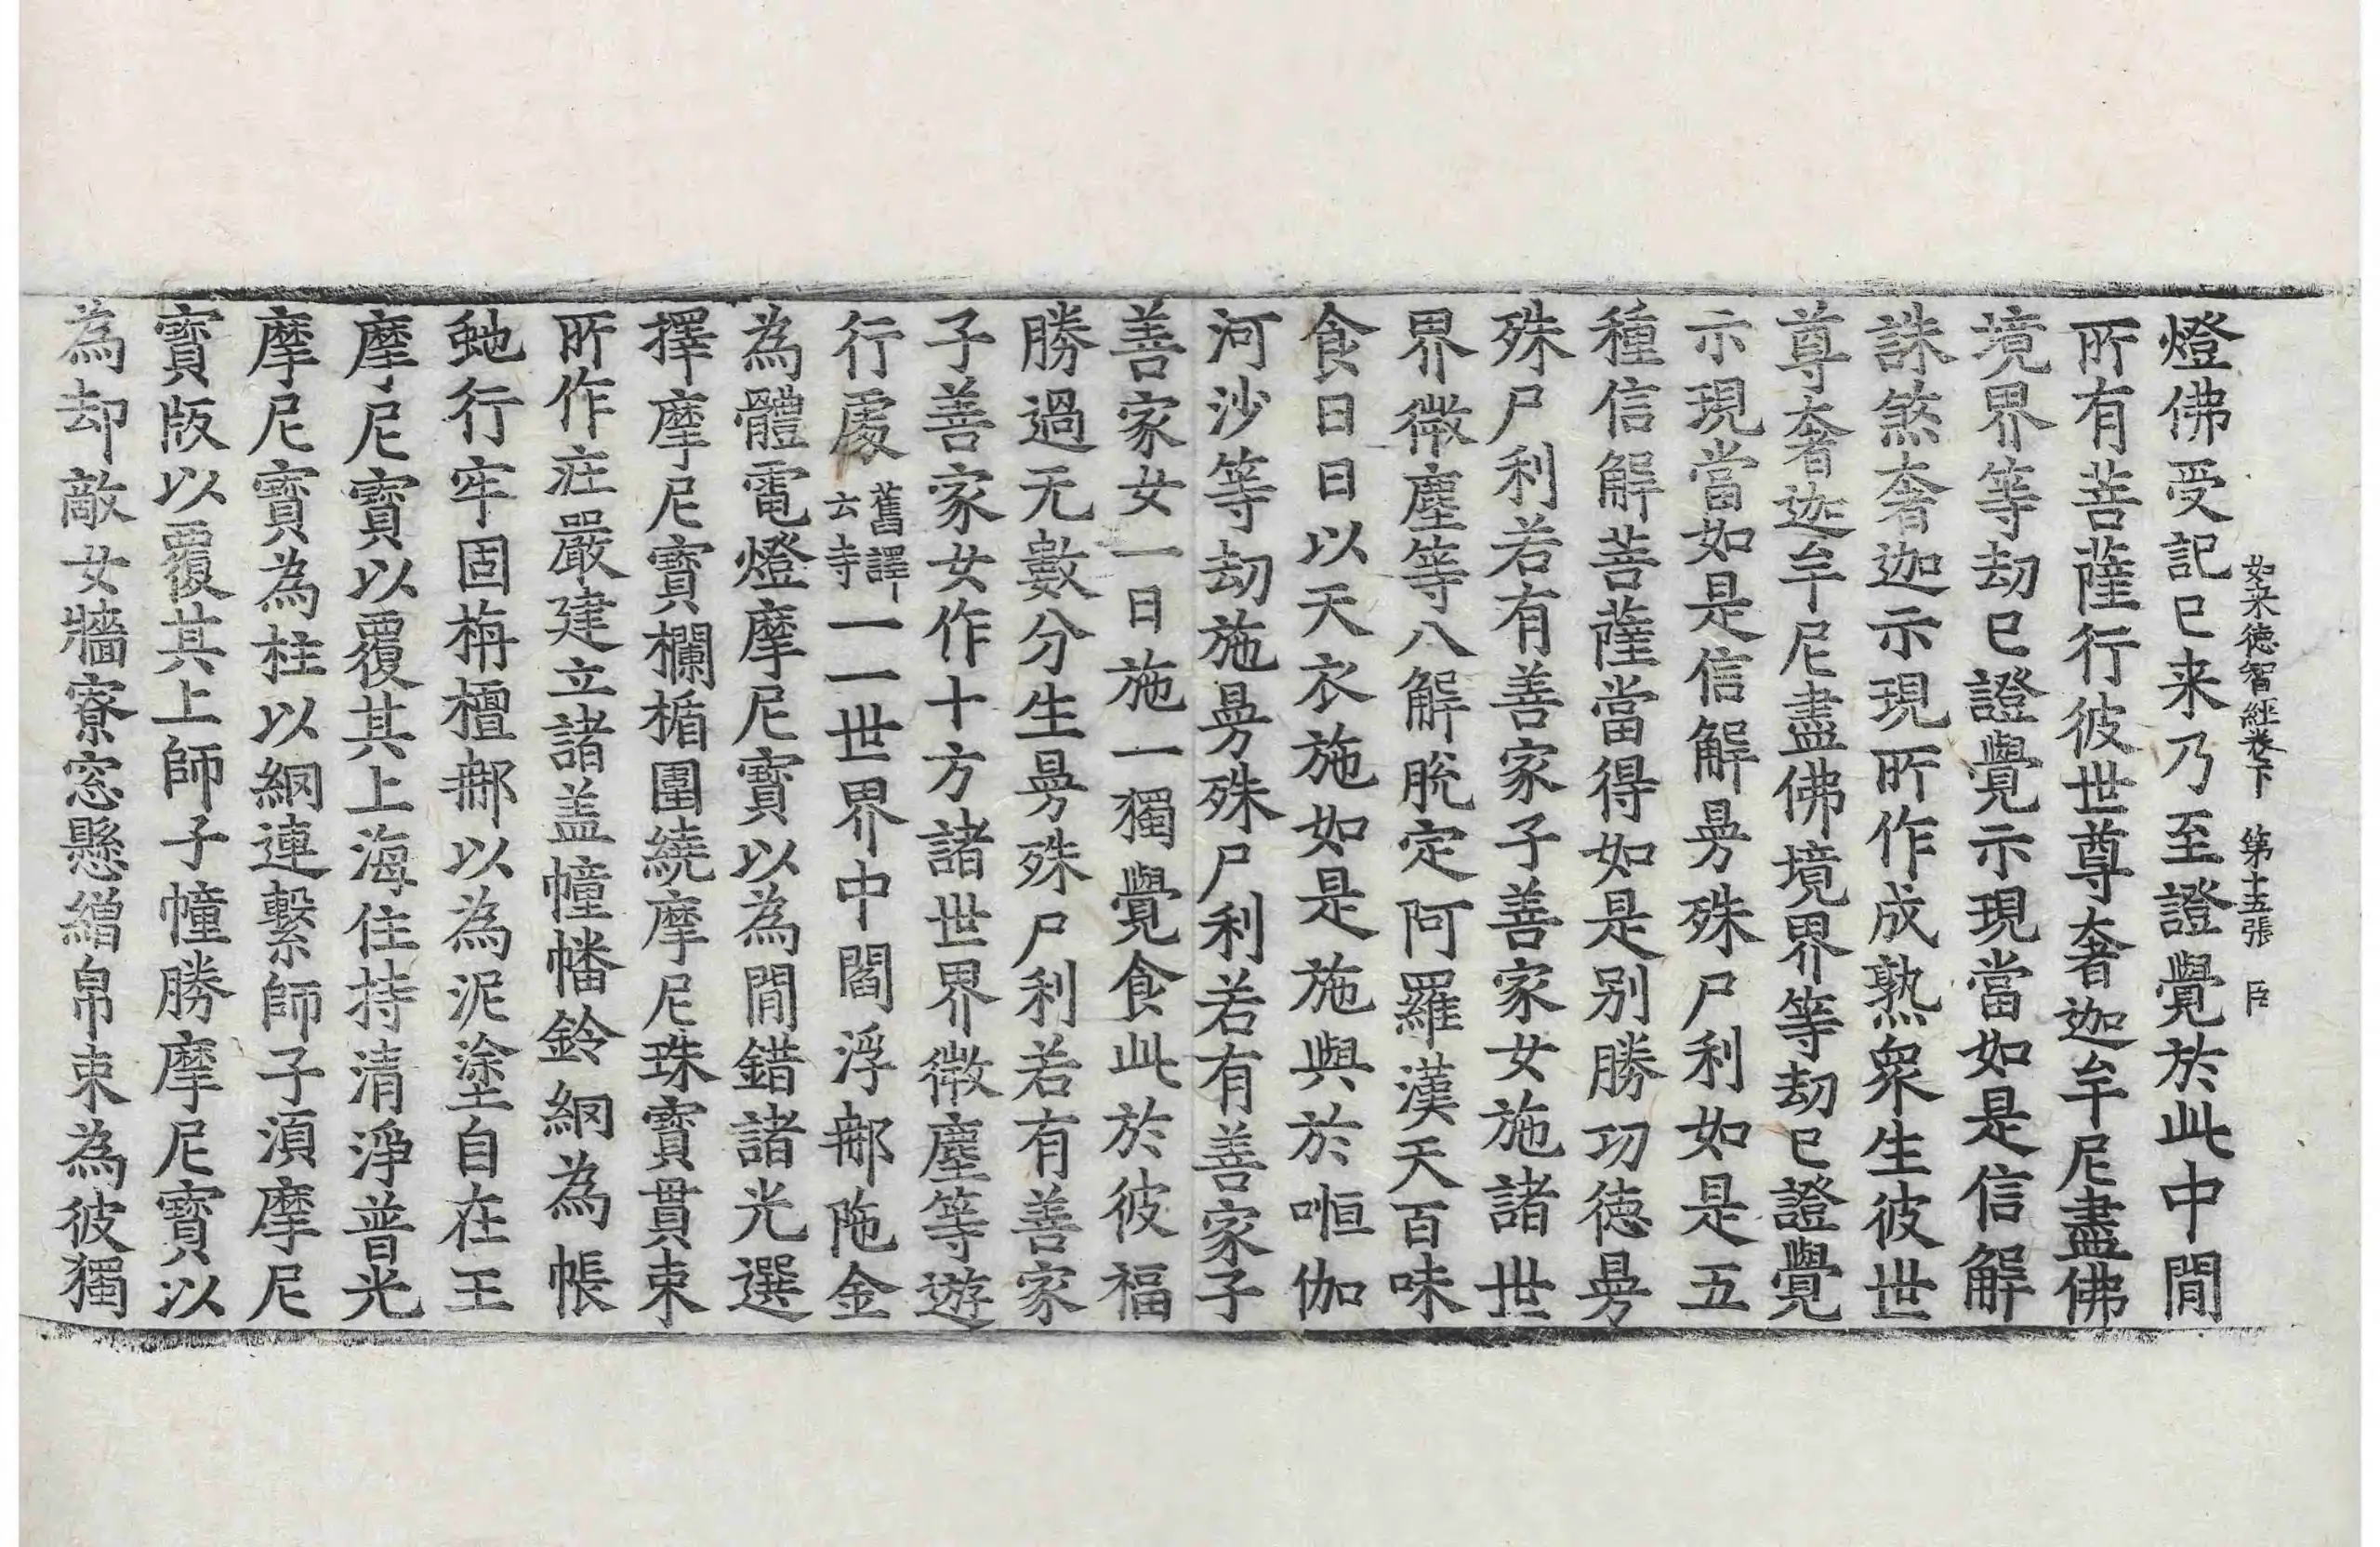 如来徳智経卷下 第十五張 臣
燈佛受記已来乃至證覺於此中閒
所有菩薩行彼世尊奢迦牟尼盡佛
境界等劫已證覺示現當如是信解
誅煞奢迦示現所作成熟衆生彼世
尊奢迦牟尼盡佛境界等劫已證覺
示現當如是信解曼殊尸利如是五
種信解菩薩當得如是别勝功徳曼
殊尸利若有善家子善家女施諸世
界微塵等八解脫定阿羅漢天百味
食日日以天衣施如是施與於恒伽
河沙等劫施曼殊尸利若有善家子
善家女一日施一獨覺食此於彼福
勝過无數分生曼殊尸利若有善家
子善家女作十方諸世界微塵等遊
行處舊譯云寺一一世界中閻浮那陁金
為體電燈摩尼寶以為閒錯諸光選
擇摩尼寶欄楯圍繞摩尼珠寶貫束
所作莊嚴建立諸盖幢幡鈴網為帳
虵行牢固栴檀那以為泥塗自在王
摩尼寶以覆其上海住持清淨普光
摩尼寶為柱以網連繫師子湏摩尼
寶版以覆其上師子幢勝摩尼寶以
為却敵女牆寮窓懸繒帛束為彼獨